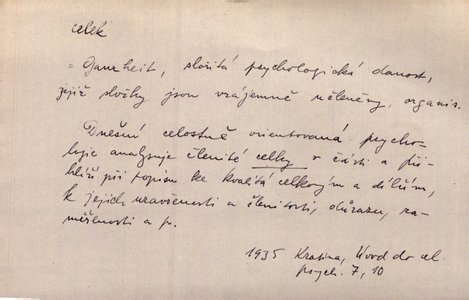 celek
= Ganzheit, složitá psychologická danost,
jejíž složky jsou vzájemně včleněny, organis.
Dnešní celostně orientovaná psycho-
logie analysuje členité celky v části a při-
hlíží při popisu ke kvalitě celkovým a dílčím,
k jejich uzavřenosti a členitosti, důrazu, za-
měřenosti a p.
1935 Kratina, Úvod do ob.
psych. 7, 10